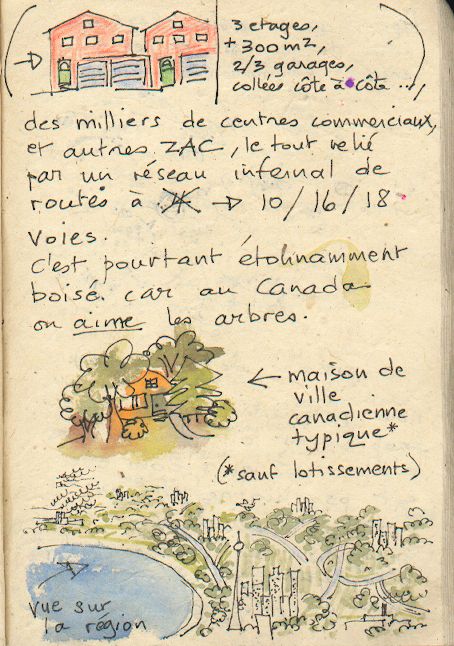 3 etages,
+ 300 m²,
2/3 garages,
collées côte à côte ...,
des milliers de centres commerciaux,
et autres ZAC, le tout relié
par un réseau infernal de
routes à → 10/16/18
voies.
C'est pourtant étonnamment
boisé. car au Canada
on aime les arbres.
← maison de
ville
canadienne
typique*
(*sauf lotissements)
vue sur
la région